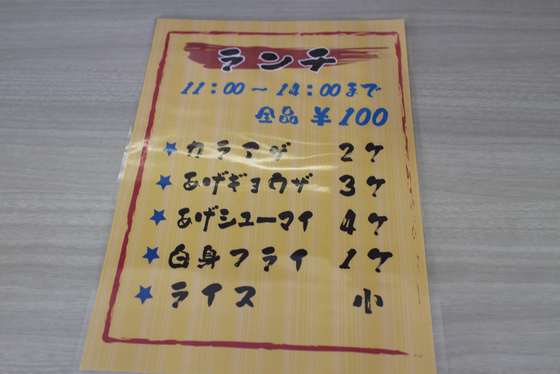 ランチ
11:00～14:00まで
全品 ¥100
★カライゲ 2ケ
★あげギョウザ 3ケ
★あげシューマイ 4ケ
★白身フライ 1ケ
★ライス 小